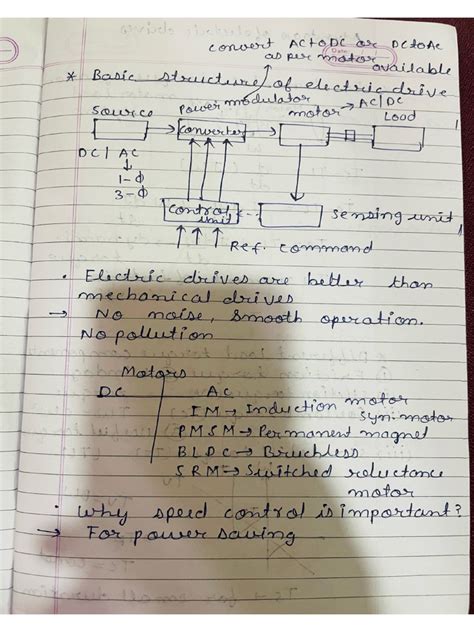 convert AC to DC or DC to Ac
as per motor
available
* Basic structure of electric drive
Source Power modulator motor → AC/DC Load
converter
DC / AC
1-Φ
3-Φ
control unit
Sensing unit
Ref. command
• Electric drives are better than
mechanical drives
→ No noise, Smooth operation.
No pollution
Motors
DC AC
IM → Induction motor
Syn. motor
PMSM → Permanent magnet
BLDC → Bruchless
SRM → Switched reluctance
motor
• Why speed control is important?
→ For power saving